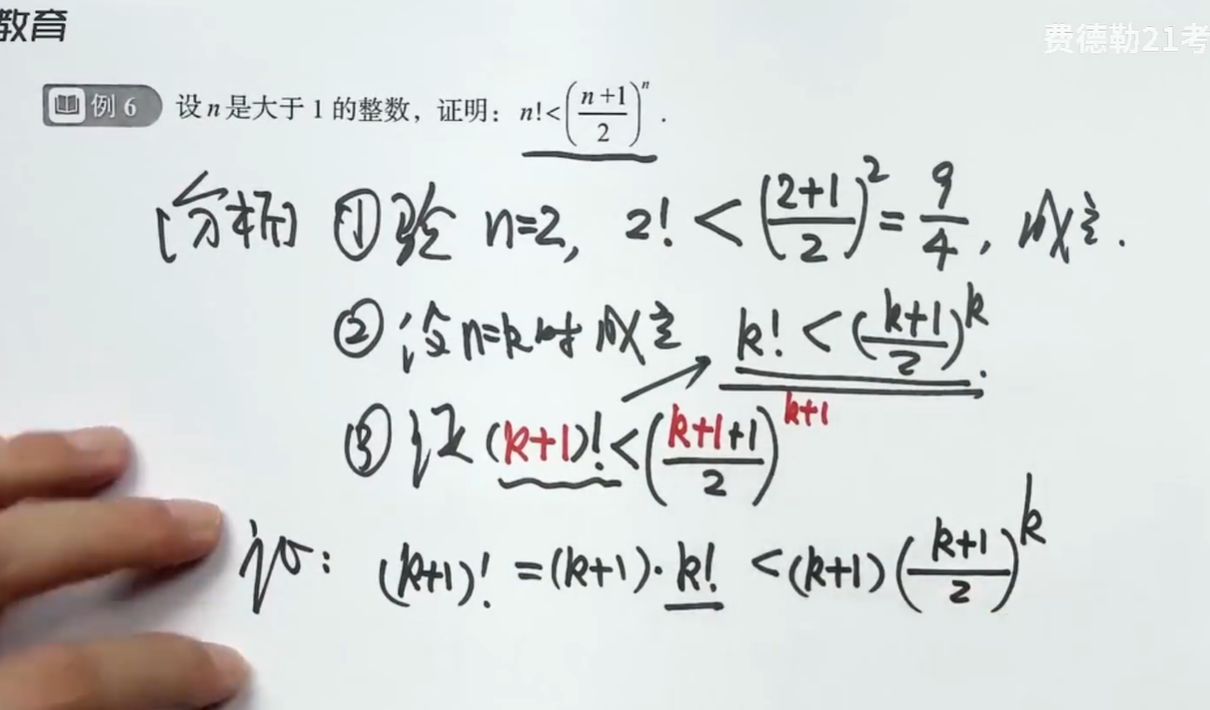 教育
费德勒21考
例6 设n是大于1的整数，证明：n!<((n+1)/2)^n.
[分析] ①验 n=2, 2! < ((2+1)/2)^2 = 9/4, 成立.
②设n=k时成立 k! < ((k+1)/2)^k.
③证(k+1)! < ((k+1+1)/2)^(k+1)
证: (k+1)! = (k+1)·k! < (k+1)((k+1)/2)^k